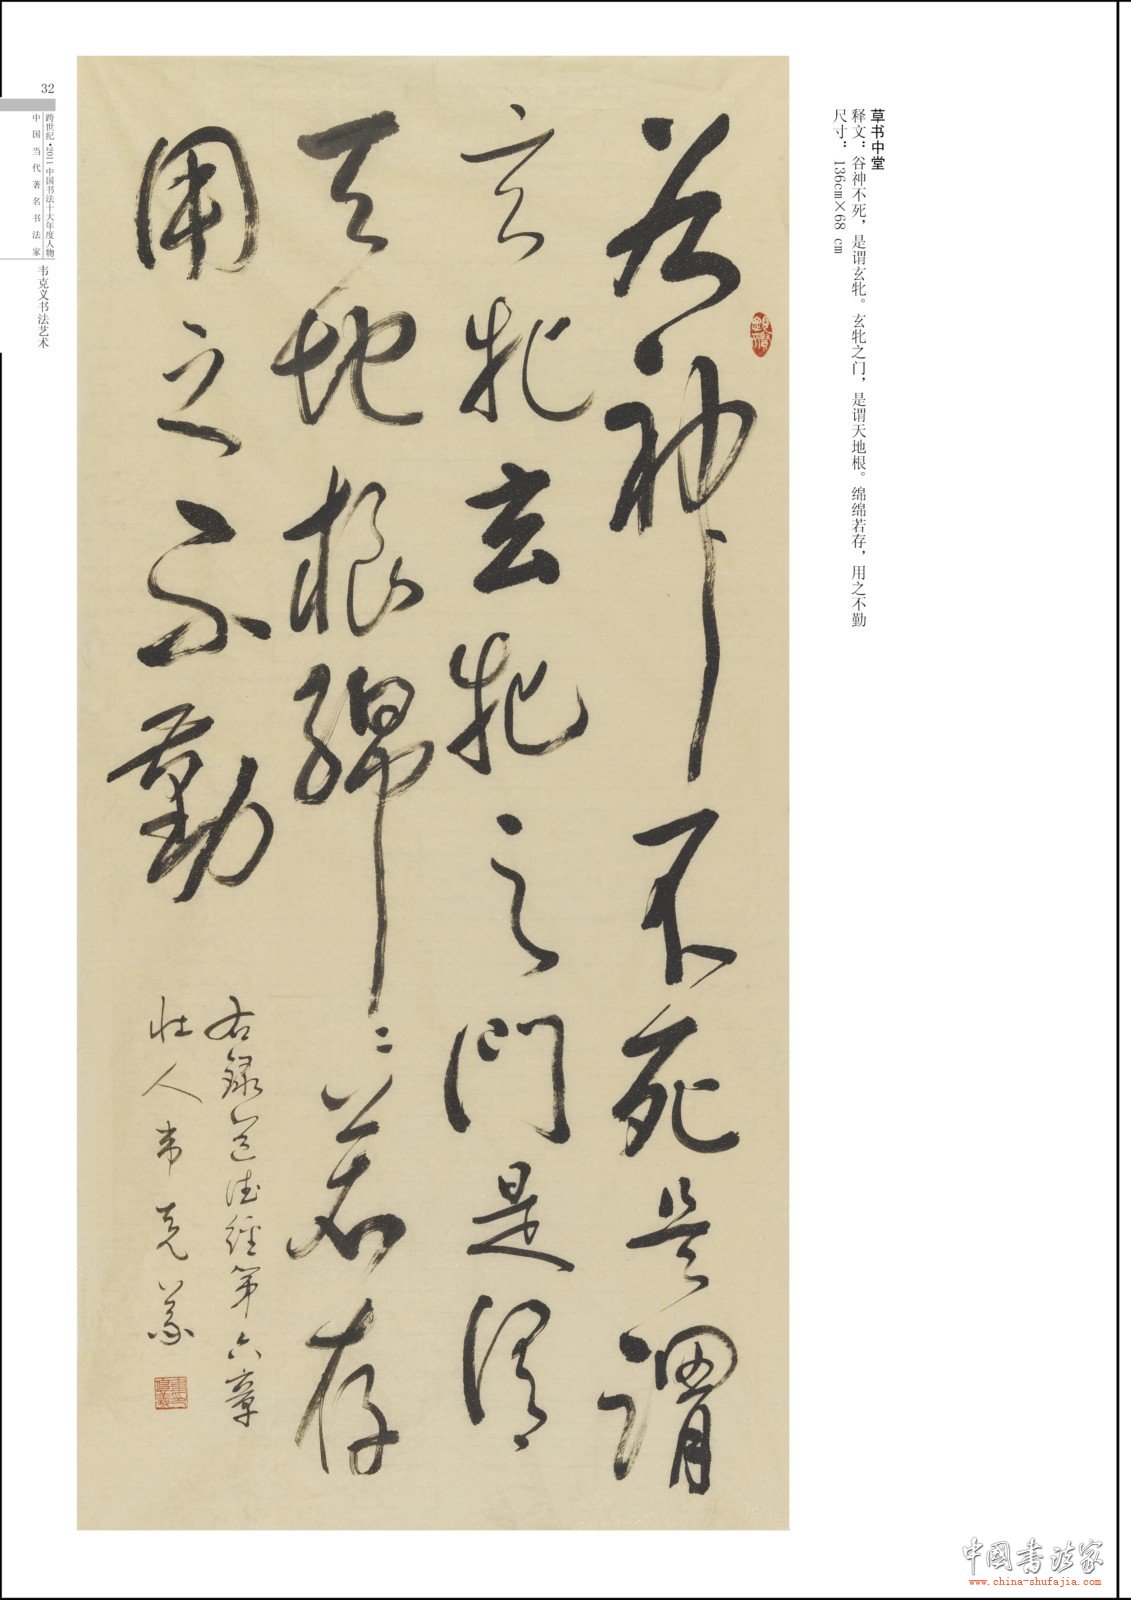 草书中堂
释文：谷神不死，是谓玄牝。玄牝之门，是谓天地根。绵绵若存，用之不勤
尺寸：136cm×68 cm
谷神不死是谓
玄牝玄牝之門是谓
天地根綿〻若存
用之不勤
右録道德經第六章
壮人韦克義
32
跨世纪·2011中国书法十大年度人物
中国当代著名书法家
韦克义书法艺术
中国书法家
www.china-shufajia.com